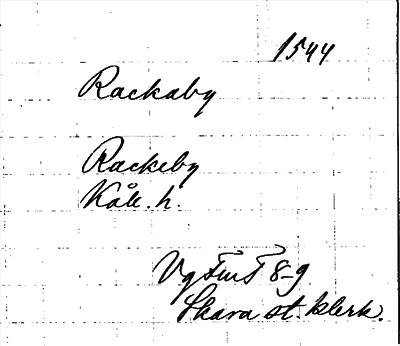 1544
Rackaby
Rackeby
Kåll. h.
Vg FmT 8-9
Skara st. klerk.